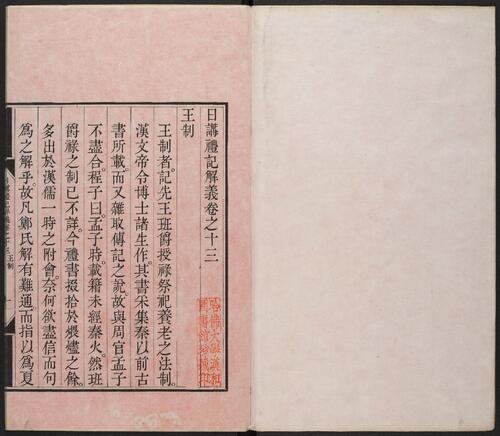 日講禮記解義卷之十三
王制
王制者記先王班爵授祿祭祀養老之法制。
漢文帝令博士諸生作。其書采集秦以前古
書所載。而又雜取傳記之說。故與周官孟子
不盡合。程子曰。孟子時。載籍未經秦火。然班
爵祿之制已不詳。今禮書掇拾於煨燼之餘。
多出於漢儒一時之附會。奈何欲盡信而句
爲之解乎。故凡鄭氏解有難通。而指以爲夏
王制
一